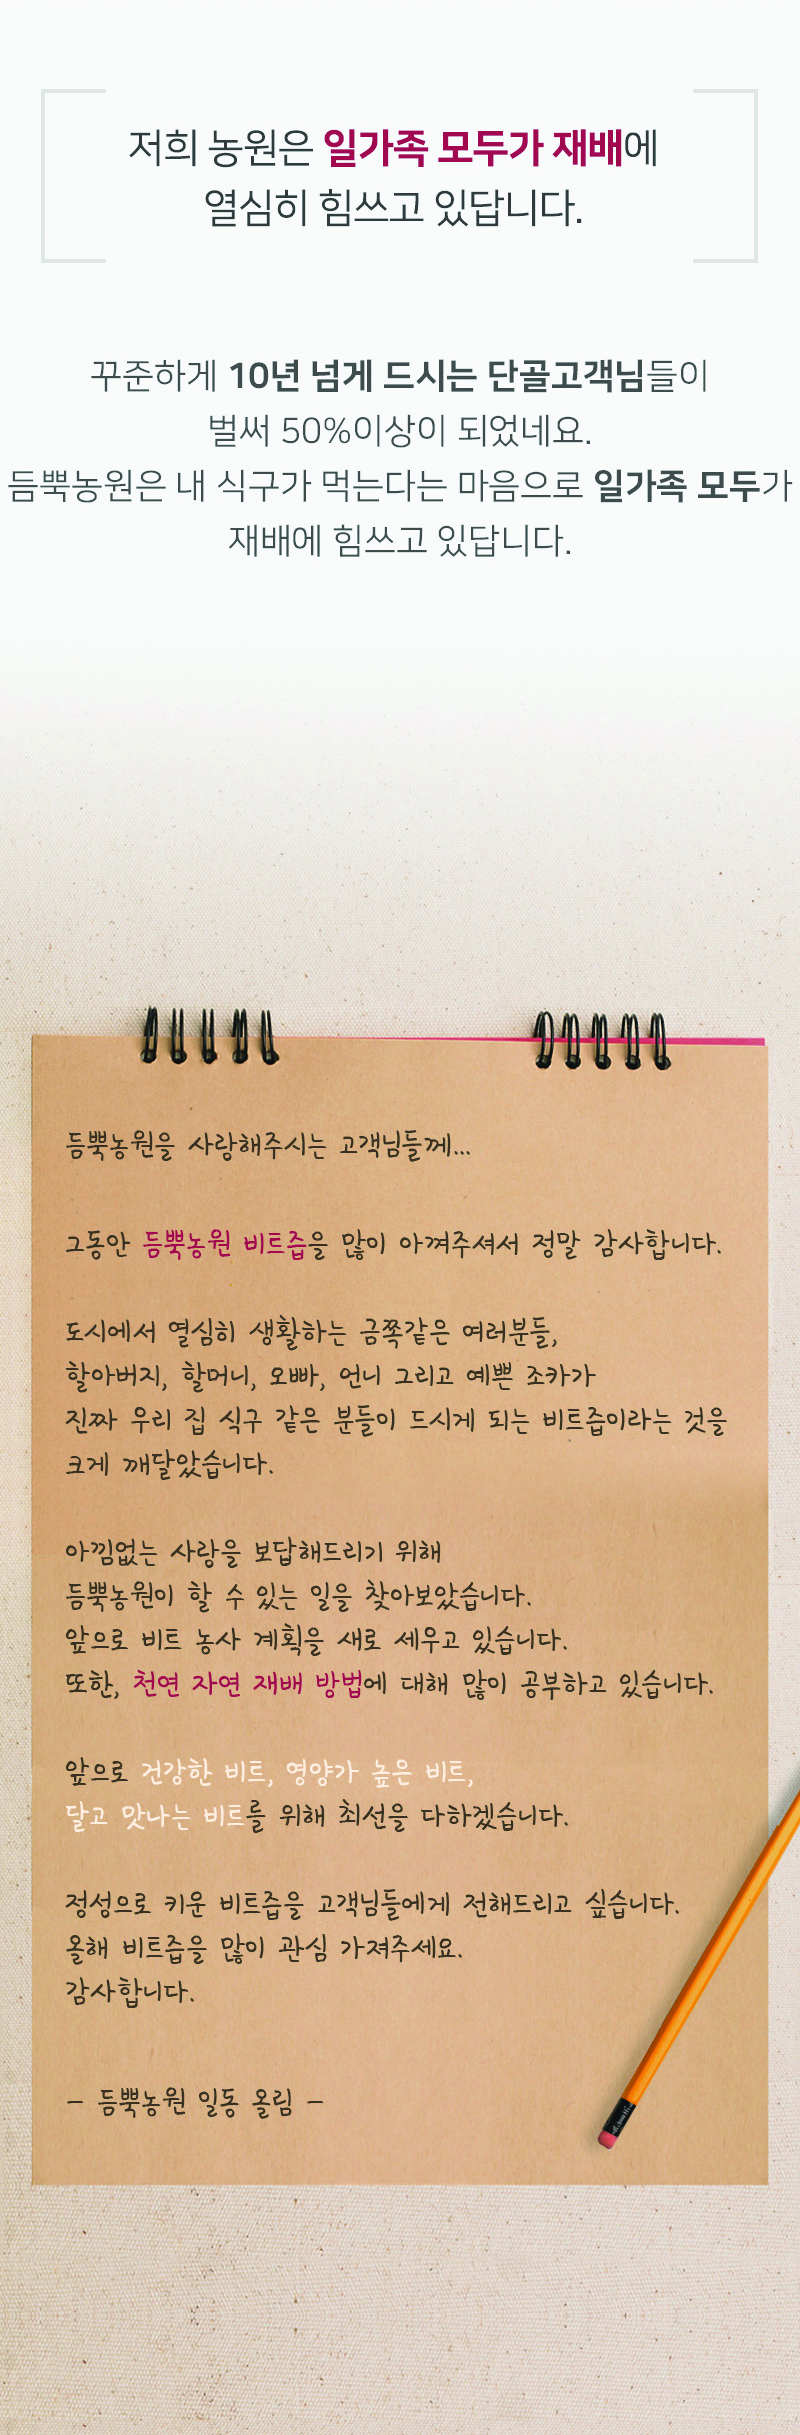 저희 농원은 일가족 모두가 재배에
열심히 힘쓰고 있답니다.
꾸준하게 10년 넘게 드시는 단골고객님들이
벌써 50%이상이 되었네요.
듬뿍농원은 내 식구가 먹는다는 마음으로 일가족 모두가
재배에 힘쓰고 있답니다.
듬뿍농원을 사랑해주시는 고객님들께...
그동안 듬뿍농원 비트즙을 많이 아껴주셔서 정말 감사합니다.
도시에서 열심히 생활하는 금쪽같은 여러분들,
할아버지, 할머니, 오빠, 언니 그리고 예쁜 조카가
진짜 우리 집 식구 같은 분들이 드시게 되는 비트즙이라는 것을
크게 깨달았습니다.
아낌없는 사랑을 보답해드리기 위해
듬뿍농원이 할 수 있는 일을 찾아보았습니다.
앞으로 비트 농사 계획을 새로 세우고 있습니다.
또한, 천연 자연 재배 방법에 대해 많이 공부하고 있습니다.
앞으로 건강한 비트, 영양가 높은 비트,
달고 맛나는 비트를 위해 최선을 다하겠습니다.
정성으로 키운 비트즙을 고객님들에게 전해드리고 싶습니다.
올해 비트즙을 많이 관심 가져주세요.
감사합니다.
- 듬뿍농원 일동 올림 -